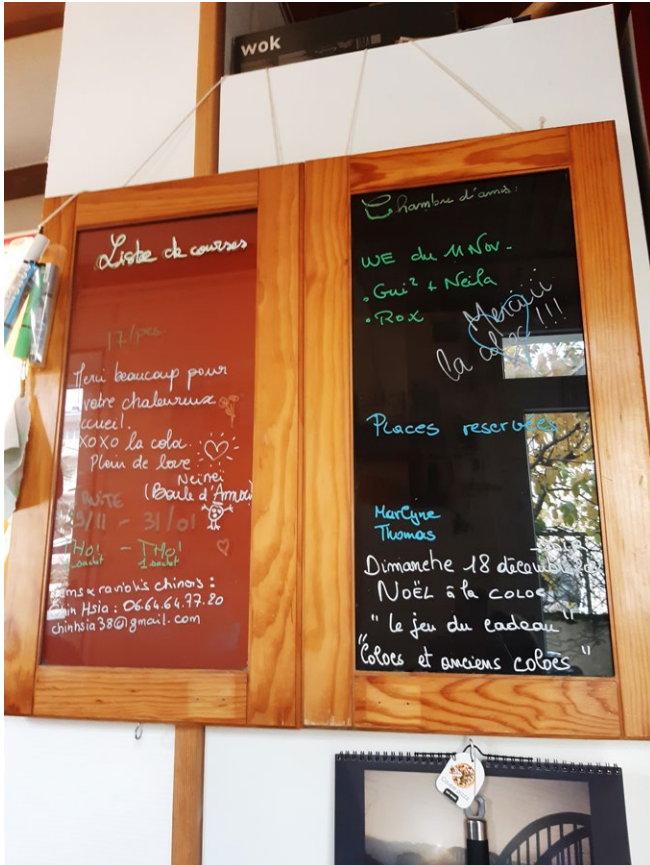 wok
Liste de courses
17/pers
Merci beaucoup pour
votre chaleureux
accueil.
XOXO la coloc
Plein de love
Neinei
(Boule d'Amour)
- 31/01
THO! - THO!
1 sachet 1 sachet
& raviolis chinois :
Hsia : 06.64.64.77.20
chinhsia38@gmail.com
Chambre d'amis :
WE du 11 Nov -
• Gui² + Neila
• Rox
Merciii
la coloc !!!
Places reservées
Marlyne
Thomas
Dimanche 18 décembre
NOËL à la coloc
" le jeu du cadeau "
"Colocs et anciens colocs "